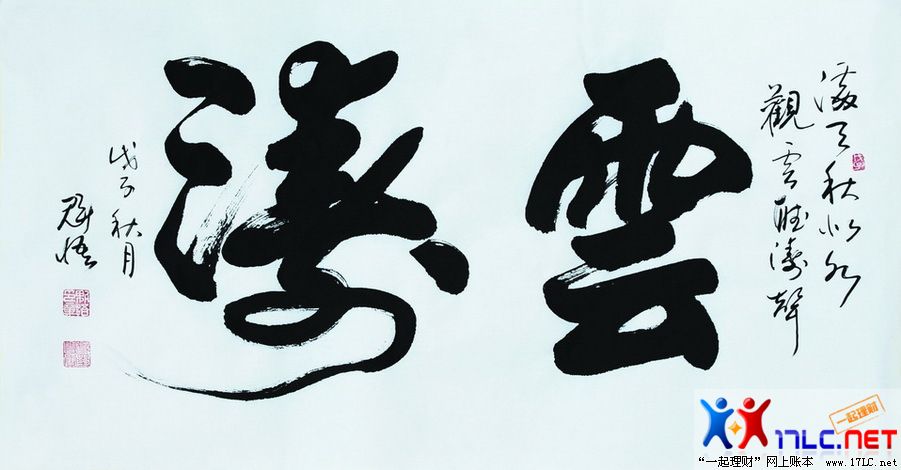 滿天秋似水
觀雲聽濤聲
雲濤
戊子秋月
一起理财
17LC.NET
“一起理财”网上账本 www.17lc.net